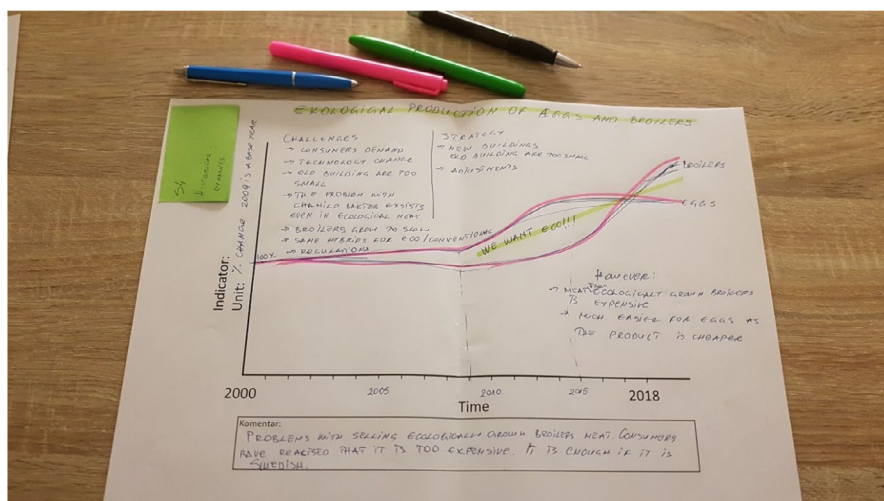 EKOLOGICAL PRODUCTION OF ÄGGS AND BROILERS
S4
CHALLENGES
→ CONSUMERS DEMAND
→ TECHNOLOGY CHANGE
→ OLD BUILDING ARE TOO
SMALL
→ THE PROBLEM WITH
EXSISTS
EVEN IN ECOLOGICAL MEAT
→ BROILERS GROW TO SLOW
→ SAME HYBRIDS FOR ECO/CONVENTIONAL
→ REGULATIONS
STRATEGY
→ NEW BUILDINGS
OLD BUILDING ARE TOO SMALL
→ ADJUSTMENTS
BROILERS
EGGS
WE WANT ECO!!!
HOWEVER:
→ MEAT FROM ECOLOGICALY GROWN BROILERS
IS EXPENSIVE
→ MUCH EASIER FOR EGGS AS
THE PRODUCT IS CHEAPER
Indicator:
Unit: % CHANGE 2009 IS A BASE YEAR
100%
2000
2005
2010
2015
2018
Time
Komentar:
PROBLEMS WITH SELLING ECOLOGICALLY GROWN BROILERS MEAT. CONSUMERS
HAVE REALISED THAT IT IS TOO EXPENSIVE. IT IS ENOUGH IF IT IS
SWEDISH.